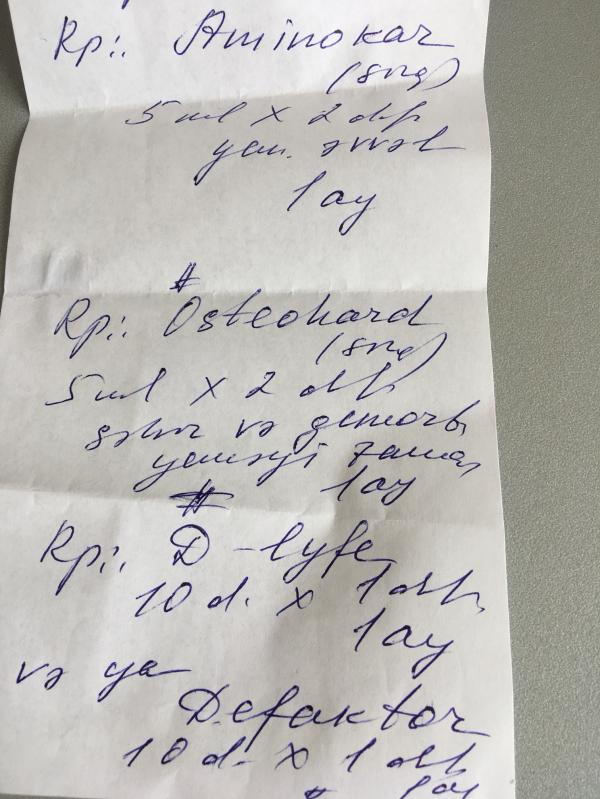 Rp:. Aminokar
5 ml x 2 df
yem. əvvəl
1 ay
#
Rp:. Osteohard
5 ml x 2 df
səhər və
yeməyi zamanı
1 ay
#
Rp:. D-lyfe
10 d. x 1 df
1 ay
və ya
Defaktor
10 d. x 1 df
# 1 ay